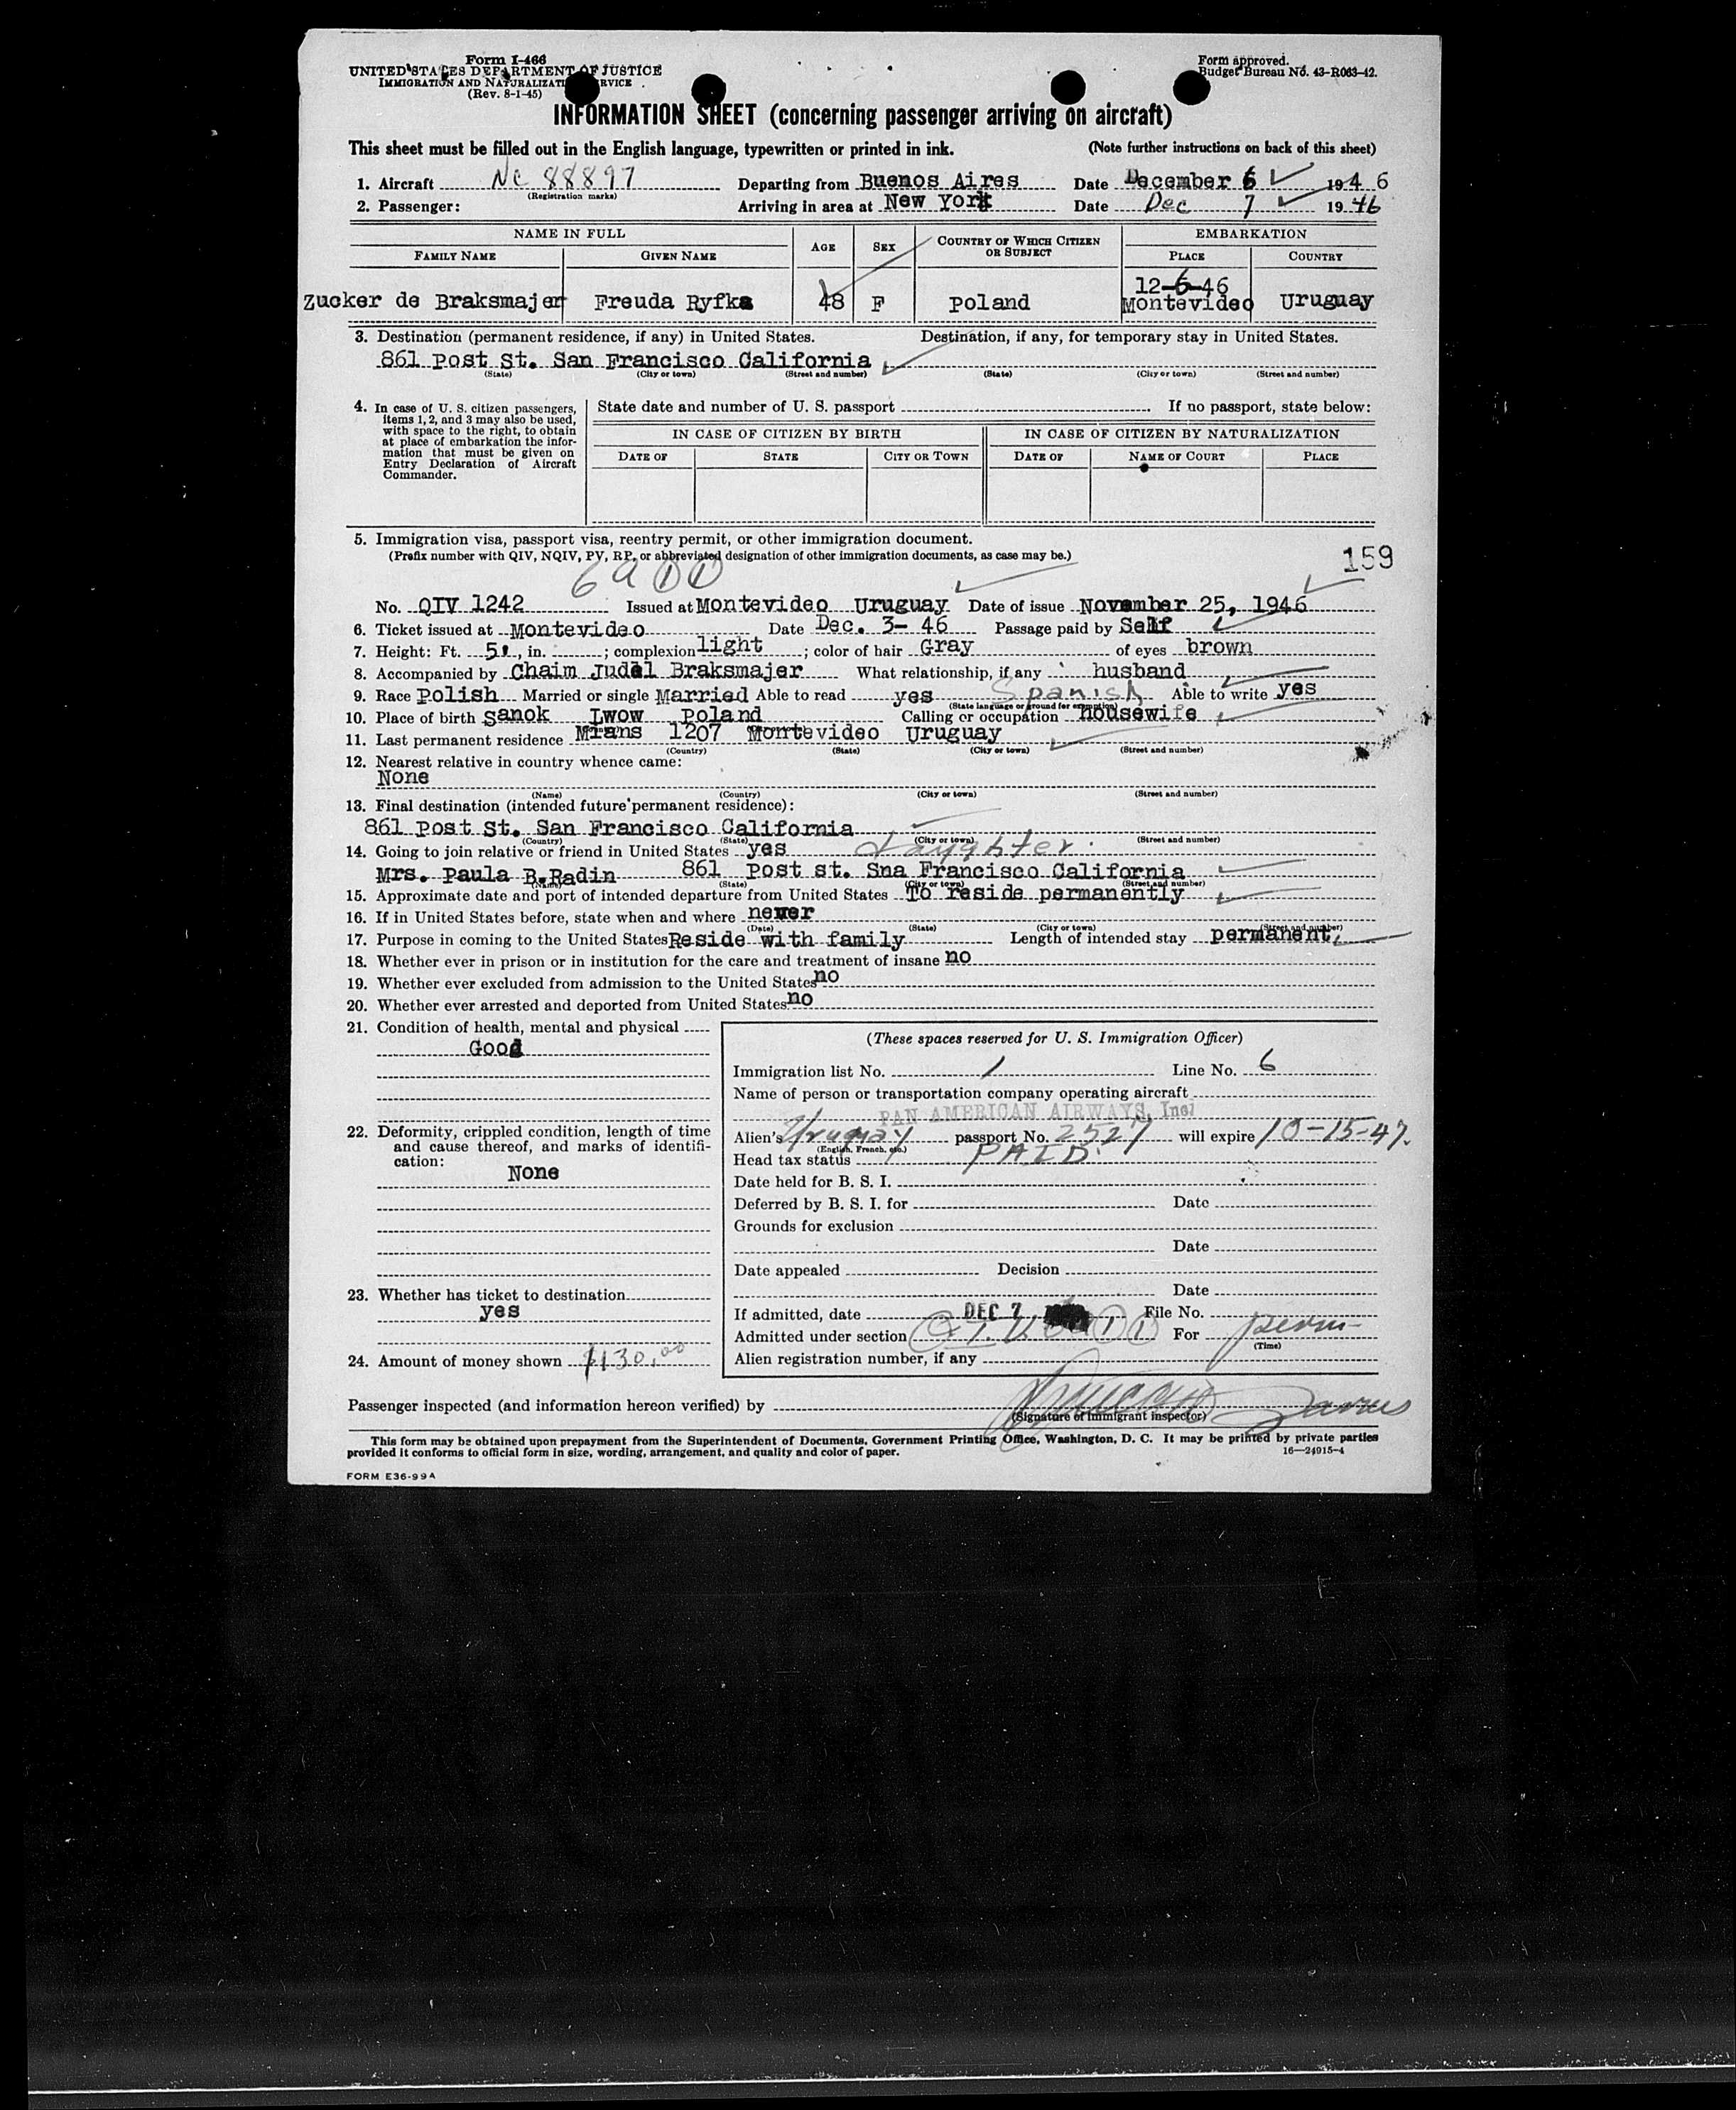 Form I-466
UNITED STATES DEPARTMENT OF JUSTICE
IMMIGRATION AND NATURALIZATION SERVICE
(Rev. 8-1-45)
Form approved.
Budget Bureau No. 43-R063-42.
INFORMATION SHEET (concerning passenger arriving on aircraft)
This sheet must be filled out in the English language, typewritten or printed in ink. (Note further instructions on back of this sheet)
1. Aircraft NC 88897 Departing from Buenos Aires Date December 6 1946
(Registration marks)
2. Passenger: Arriving in area at New York Date Dec 7 1946
NAME IN FULL AGE SEX COUNTRY OF WHICH CITIZEN OR SUBJECT EMBARKATION
FAMILY NAME GIVEN NAME PLACE COUNTRY
12-6-46
Zucker de Braksmajer Freuda Ryfka 48 F Poland Montevideo Uruguay
3. Destination (permanent residence, if any) in United States. Destination, if any, for temporary stay in United States.
861 Post St. San Francisco California
(State) (City or town) (Street and number) (State) (City or town) (Street and number)
4. In case of U. S. citizen passengers, items 1, 2, and 3 may also be used, with space to the right, to obtain at place of embarkation the information that must be given on Entry Declaration of Aircraft Commander.
State date and number of U. S. passport If no passport, state below:
IN CASE OF CITIZEN BY BIRTH IN CASE OF CITIZEN BY NATURALIZATION
DATE OF STATE CITY OR TOWN DATE OF NAME OF COURT PLACE
5. Immigration visa, passport visa, reentry permit, or other immigration document.
(Prefix number with QIV, NQIV, PV, RP, or abbreviated designation of other immigration documents, as case may be.)
159
No. QIV 1242 Issued at Montevideo Uruguay Date of issue November 25, 1946
6. Ticket issued at Montevideo Date Dec. 3- 46 Passage paid by Self
7. Height: Ft. 5', in. ; complexion light ; color of hair Gray of eyes brown
8. Accompanied by Chaim Judel Braksmajer What relationship, if any husband
9. Race Polish Married or single Married Able to read yes Spanish Able to write yes
(State language or ground for exemption)
10. Place of birth Sanok Lwow Poland Calling or occupation housewife
11. Last permanent residence Mians 1207 Montevideo Uruguay
(Country) (State) (City or town) (Street and number)
12. Nearest relative in country whence came:
None
(Name) (Country) (City or town) (Street and number)
13. Final destination (intended future permanent residence):
861 Post St. San Francisco California
(Country) (State) (City or town) (Street and number)
14. Going to join relative or friend in United States yes daughter
Mrs. Paula B. Radin 861 Post st. Sna Francisco California
(Name) (State) (City or town) (Street and number)
15. Approximate date and port of intended departure from United States To reside permanently
16. If in United States before, state when and where never
(Date) (State) (City or town) (Street and number)
17. Purpose in coming to the United States Reside with family Length of intended stay permanent
18. Whether ever in prison or in institution for the care and treatment of insane no
19. Whether ever excluded from admission to the United States no
20. Whether ever arrested and deported from United States no
21. Condition of health, mental and physical
Good
22. Deformity, crippled condition, length of time and cause thereof, and marks of identification:
None
23. Whether has ticket to destination
yes
24. Amount of money shown $130.00
(These spaces reserved for U. S. Immigration Officer)
Immigration list No. 1 Line No. 6
Name of person or transportation company operating aircraft
PAN AMERICAN AIRWAYS, Inc.
Alien's Uruguay passport No. 2527 will expire 10-15-47.
(English, French, etc.)
Head tax status PAID
Date held for B. S. I.
Deferred by B. S. I. for Date
Grounds for exclusion
Date
Date appealed Decision
Date
If admitted, date DEC 7 File No.
Admitted under section For perm
(Time)
Alien registration number, if any
Passenger inspected (and information hereon verified) by
(Signature of immigrant inspector)
This form may be obtained upon prepayment from the Superintendent of Documents, Government Printing Office, Washington, D. C. It may be printed by private parties
provided it conforms to official form in size, wording, arrangement, and quality and color of paper. 16—24915-4
FORM E36-99A